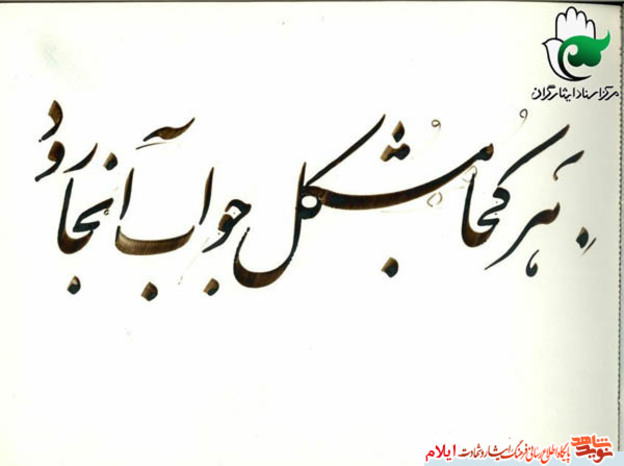 مرکز اسناد ایثارگران
هر کجا مشکل جواب آنجا رود
نوید شاهد
پایگاه اطلاع رسانی فرهنگ ایثار و شهادت ایلام